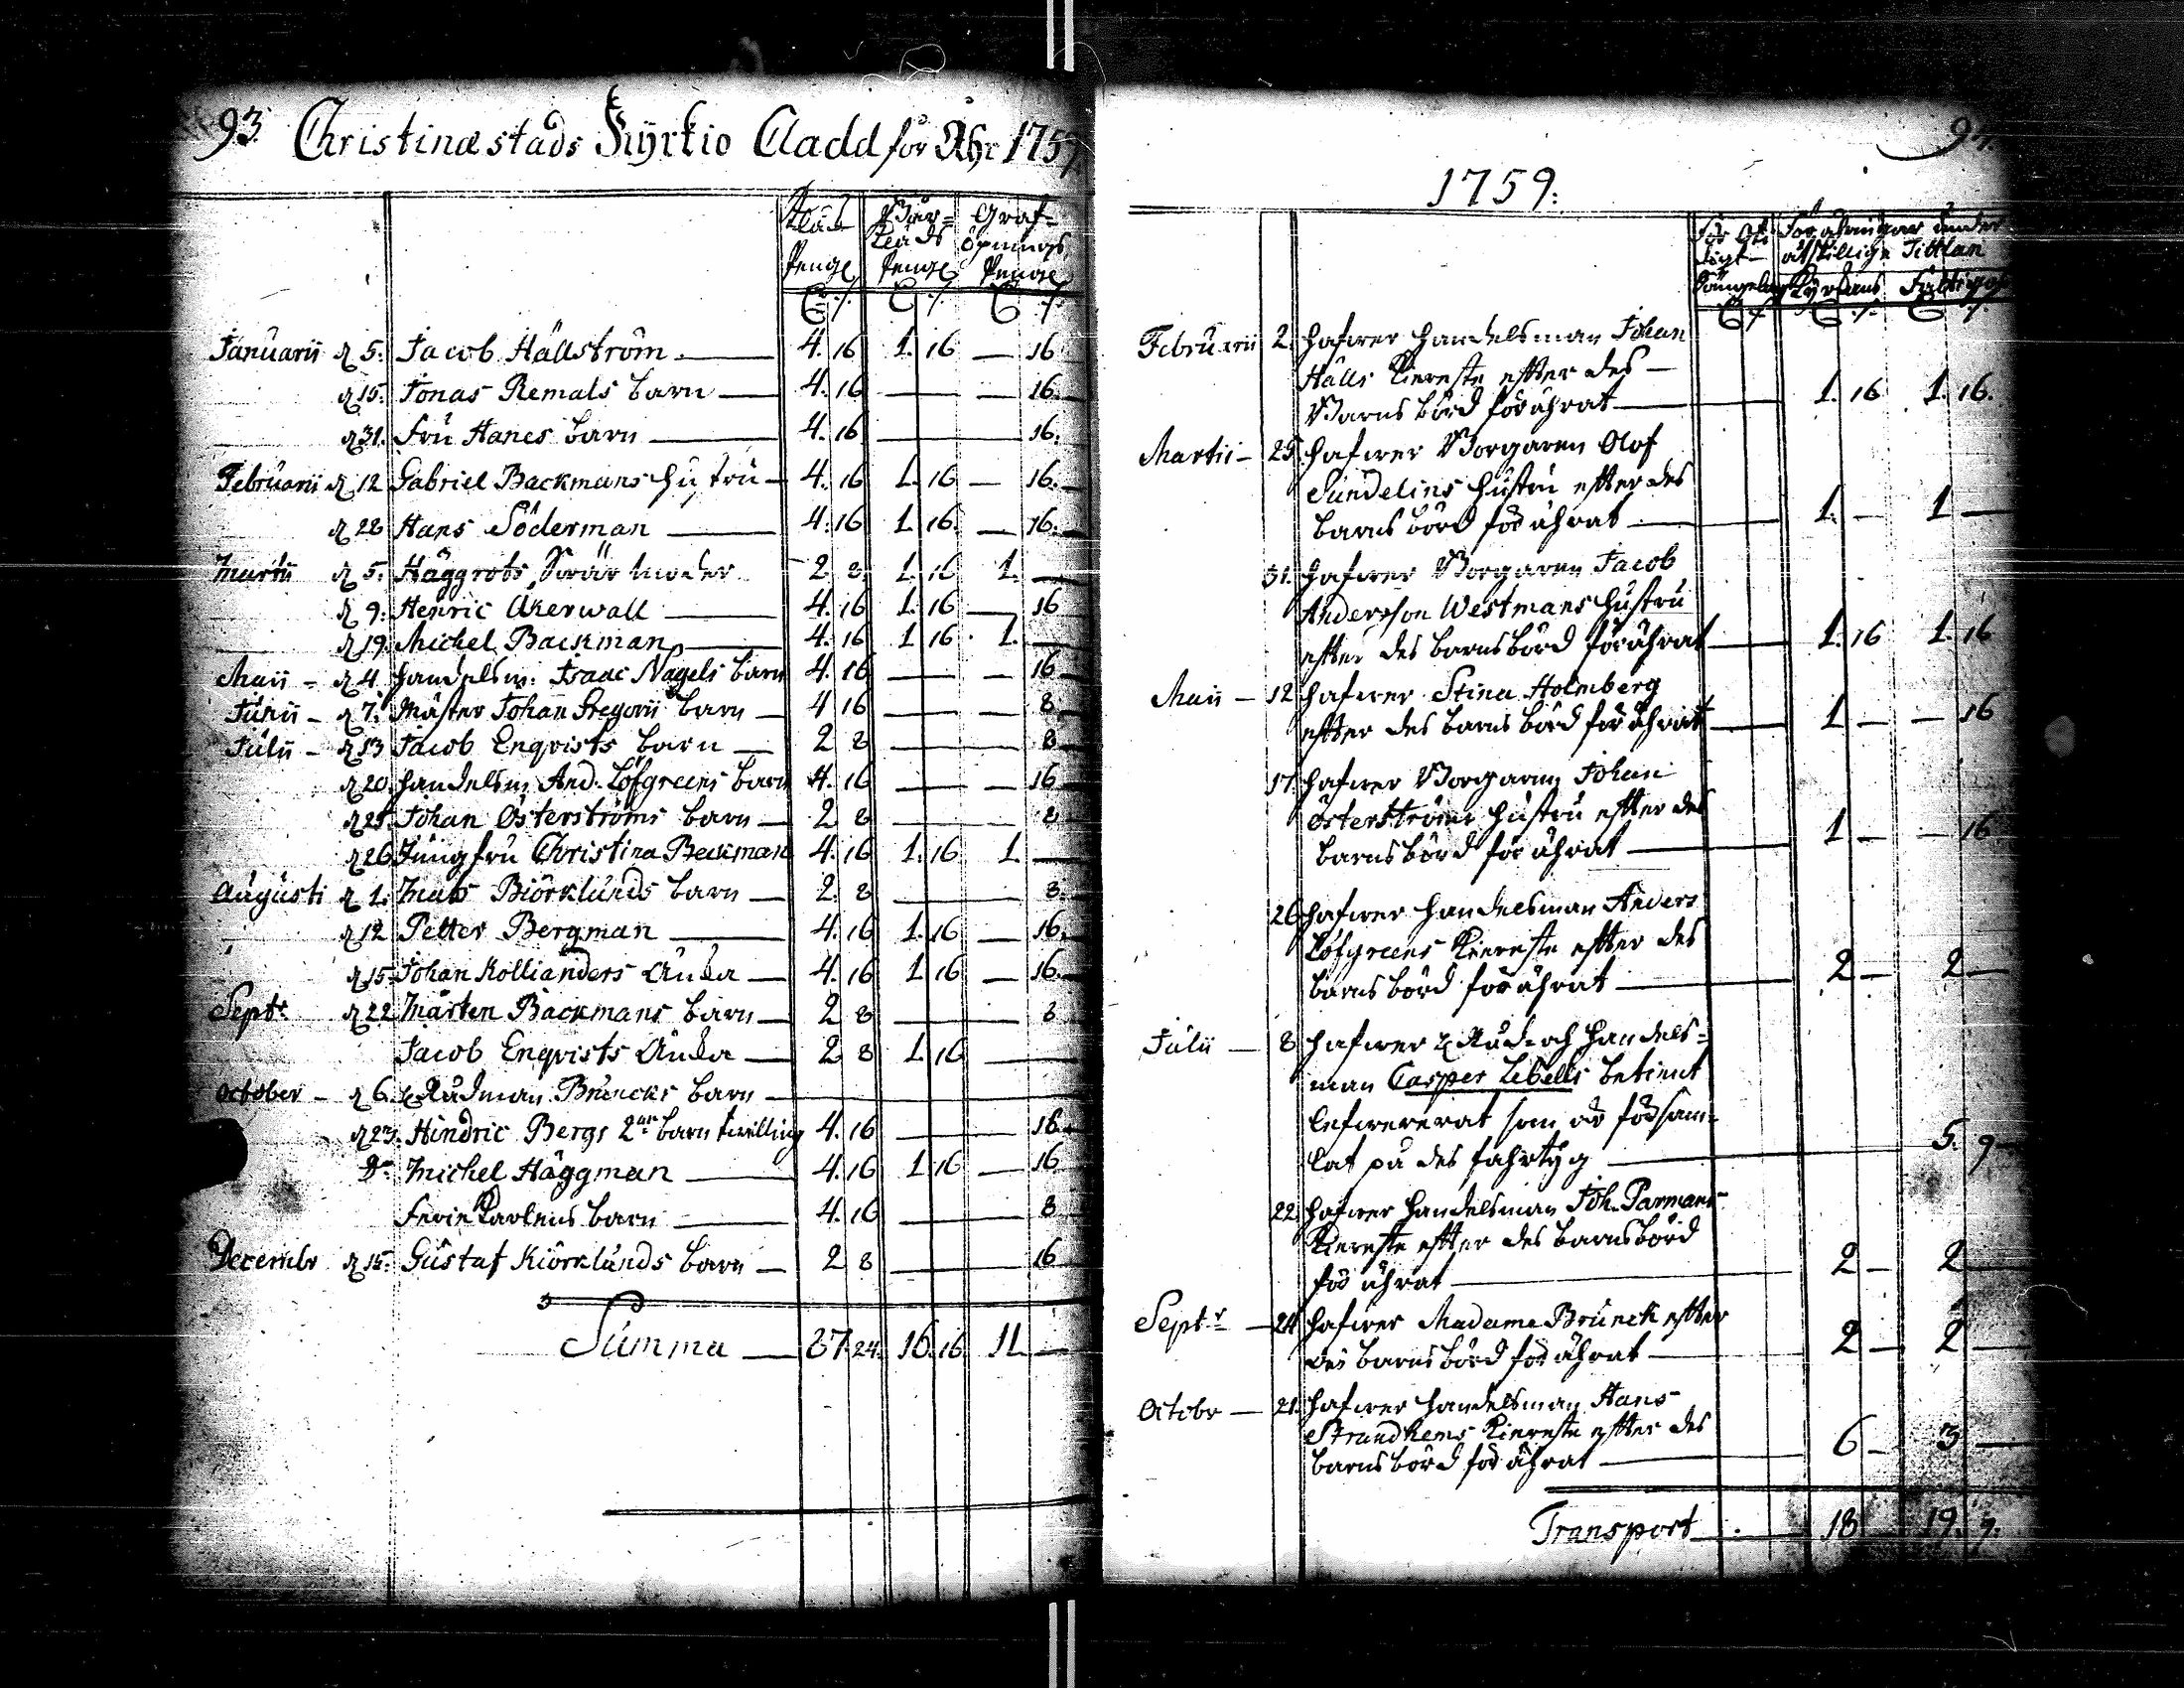 93. Christinæstads Kyrkio Cladd för Åhr 1759.
Klåck Penge Bår- Kläds Penge Graf- öpnings Penge
Januarii d 5. Jacob Hällström — 4. 16 1. 16 — 16
d 15. Jonas Remals barn — 4. 16 — — 16.
d 31. Fru Hanes barn — 4. 16 — 16.
Februarii d 12 Gabriel Backmans hustru — 4. 16 1. 16 — 16.
d 28 Hans Söderman — 4. 16 1 16. — 16.
Martii d 5. Häggrots Swärmoder 2 8. 1. 16 1. —
d 9. Henric Åkerwall — 4. 16 1. 16 — 16
d 19. Michel Backman — 4. 16 1 16. 1. —
Maii - d 4 handelsm: Isaac Nagels barn 4. 16 — — 16
Junii - d 7. Mäster Johan Gregorii barn — 4 16 — 8
Julii - d 13 Jacob Enqvists barn — 2 8 — 8
d 20. handelsm And. Löfgreens barn 4. 16 — — 16
d 25. Johan Österströms barn — 2 8 — 8
d 26. Jungfru Christina Beckman 4. 16 1. 16 1. —
Augusti d 1. Mats Biörklunds barn — 2. 8 — 8.
d 12 Petter Bergman — 4. 16 1. 16 — 16.
d 15. Johan Kollianders Änka — 4. 16 1 16 — 16.
Septr. d 22 Mårten Backmans barn — 2 8 — 8
Jacob Enqvists Änka — 2 8 1. 16 —
October - d 6. Rådman Bruncks barn —
d 23. Hindric Bergs 2ne barn twilling 4. 16 — 16.
Do Michel Häggman — 4. 16 1 16 — 16
barn — 4. 16 — 8
Decembr d 15. Gustaf Kiörklunds barn — 2 8 — 16
Summa — 87. 24. 16. 16. 11 —
1759.
Förähringar under åtskillige Titlar
Kyrkans Fattigas
Februarii 2. hafwer handelsman Johan
Hälls Kiereste efter des —
Barnsbörd förährat — 1. 16 1. 16.
Martii - 25. hafwer Borgaren Olof
Sundelins hustru efter des
barnsbörd förährat — 1. — 1 —
31. hafwer Borgaren Jacob
Andersson Westmans hustru
efter des barnsbörd förährat — 1. 16 1. 16
Maii - 12 hafwer Stina Holmberg
efter des barnsbörd förährat — 1 — — 16
17. hafwer Borgaren Johan
Österströms hustru efter des
barnsbörd förährat — 1 — — 16
26 hafwer handelsman Anders
Löfgreens Kiereste efter des
barnsbörd förährat — 2 — 2 —
Julii - 8 hafwer Råd- och handels-
man Casper Lebells betient
lefwererat som är försam-
lat på des fahrtyg — 5. 9
22. hafwer handelsman Joh. Parmans
Kiereste efter des barnsbörd
förährat — 2 — 2 —
Septr — 24 hafwer Madame Brunck efter
des barnsbörd förährat — 2 — 2 —
Octobr — 21. hafwer handelsman Hans
Strandhems Kiereste efter des
barnsbörd förährat — 6 — 3 —
Transport — 18 — 19. 9.